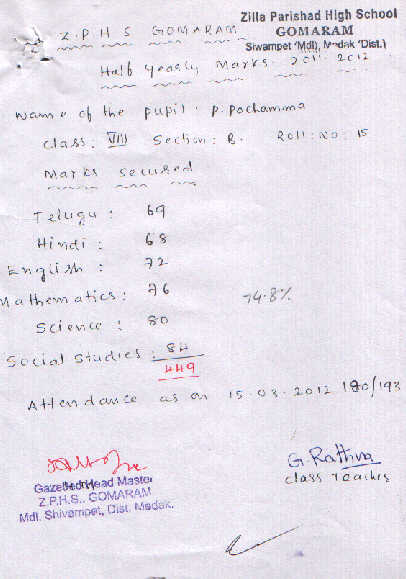 Z.P.H S GOMARAM
Zilla Parishad High School
GOMARAM
Siwampet (Mdl), Medak (Dist.)
Half yearly Marks. 2011-2012
Name of the pupil: P. Pochamma
Class: VIII Section: B. Roll: No: 15
Marks secured
Telugu: 69
Hindi: 68
English: 72
Mathematics: 76
74.8%
Science: 80
Social Studies: 84
449
Attendance as on 15.03.2012 180/193
G. Rattna
Class Teacher
Gazetted Head Master
Z.P.H.S., GOMARAM
Mdl. Shivampet, Dist. Medak.